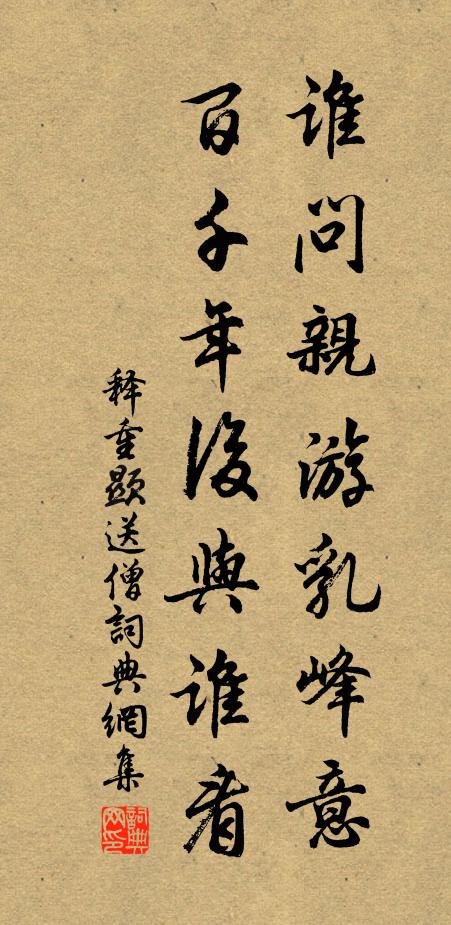 誰問親游乳峰意
百千年後與誰看
釋重顯送僧詞典網集
詞典網印